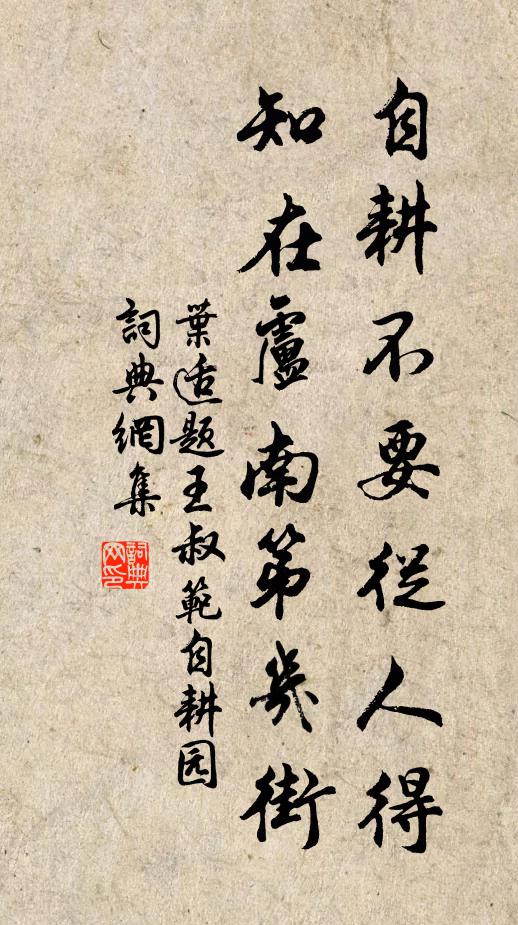 自耕不要從人得
知在廬南第幾街
葉适题王叔範自耕园
詞典網集
詞典
网印